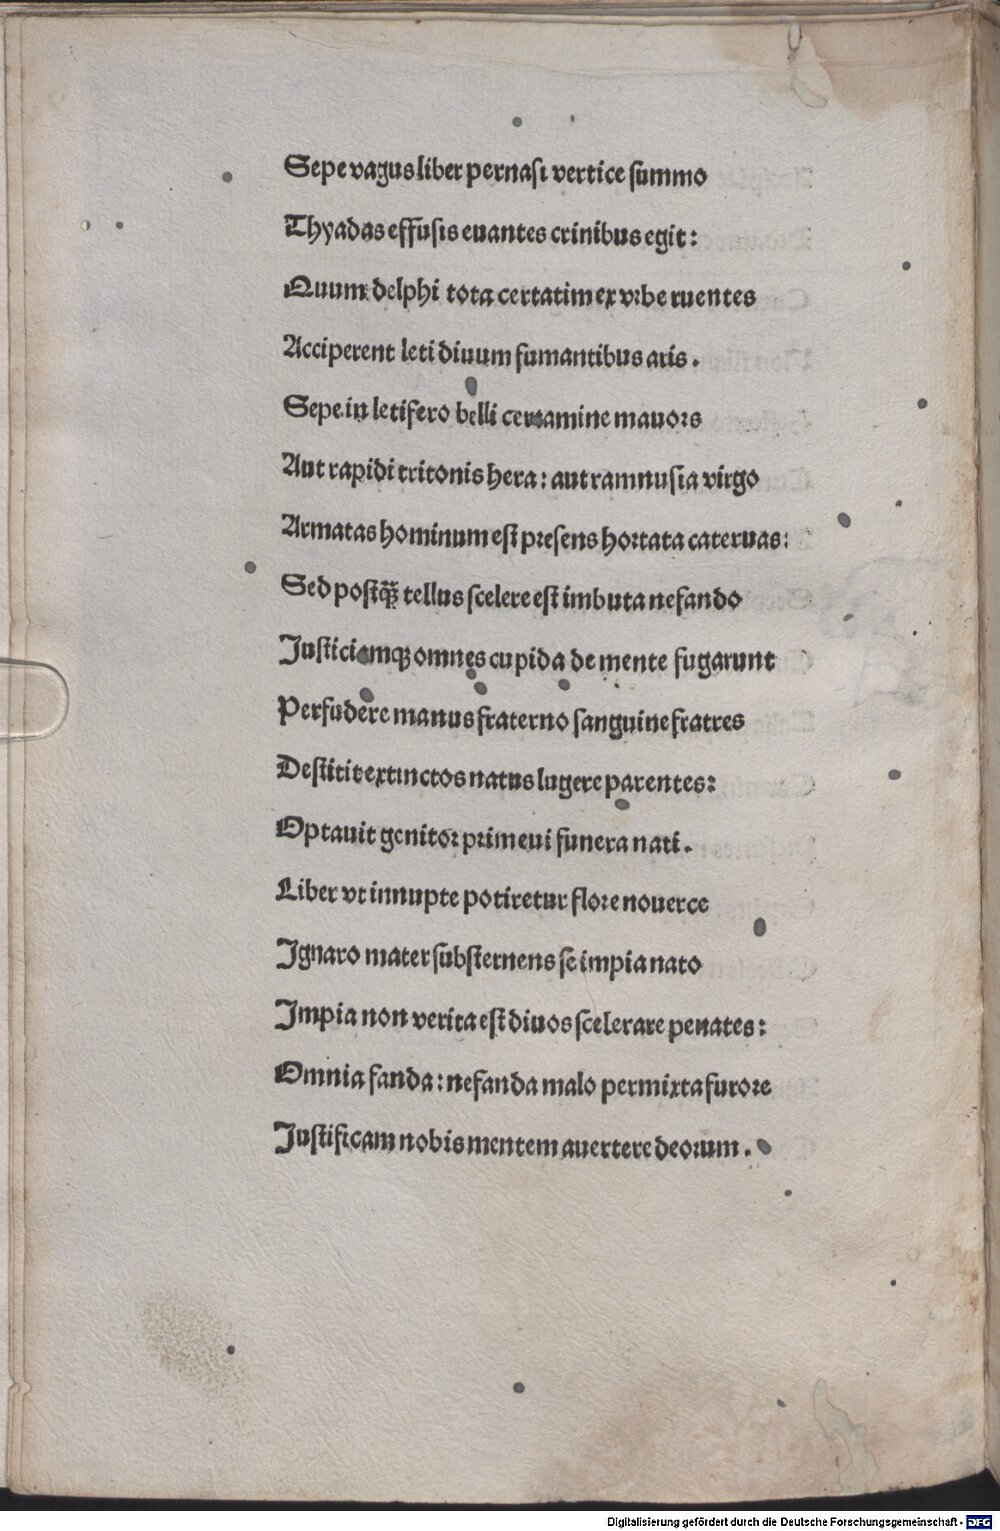 Sepe vagus liber pernasi vertice summo
Thyadas effusis euantes crinibus egit:
Quum delphi tota certatim ex vrbe ruentes
Acciperent leti diuum fumantibus aris.
Sepe in letifero belli certamine mauors
Aut rapidi tritonis hera: aut ramnusia virgo
Armatas hominum est presens hortata cateruas:
Sed postq̃ tellus scelere est imbuta nefando
Justiciamqꝫ omnes cupida de mente fugarunt
Perfudere manus fraterno sanguine fratres
Destitit extinctos natus lugere parentes:
Optauit genitor primeui funera nati.
Liber vt innupte potiretur flore nouerce
Ignaro mater substernens se impia nato
Impia non verita est diuos scelerare penates:
Omnia fanda: nefanda malo permixta furore
Justificam nobis mentem auertere deorum.
Digitalisierung gefördert durch die Deutsche Forschungsgemeinschaft - DFG